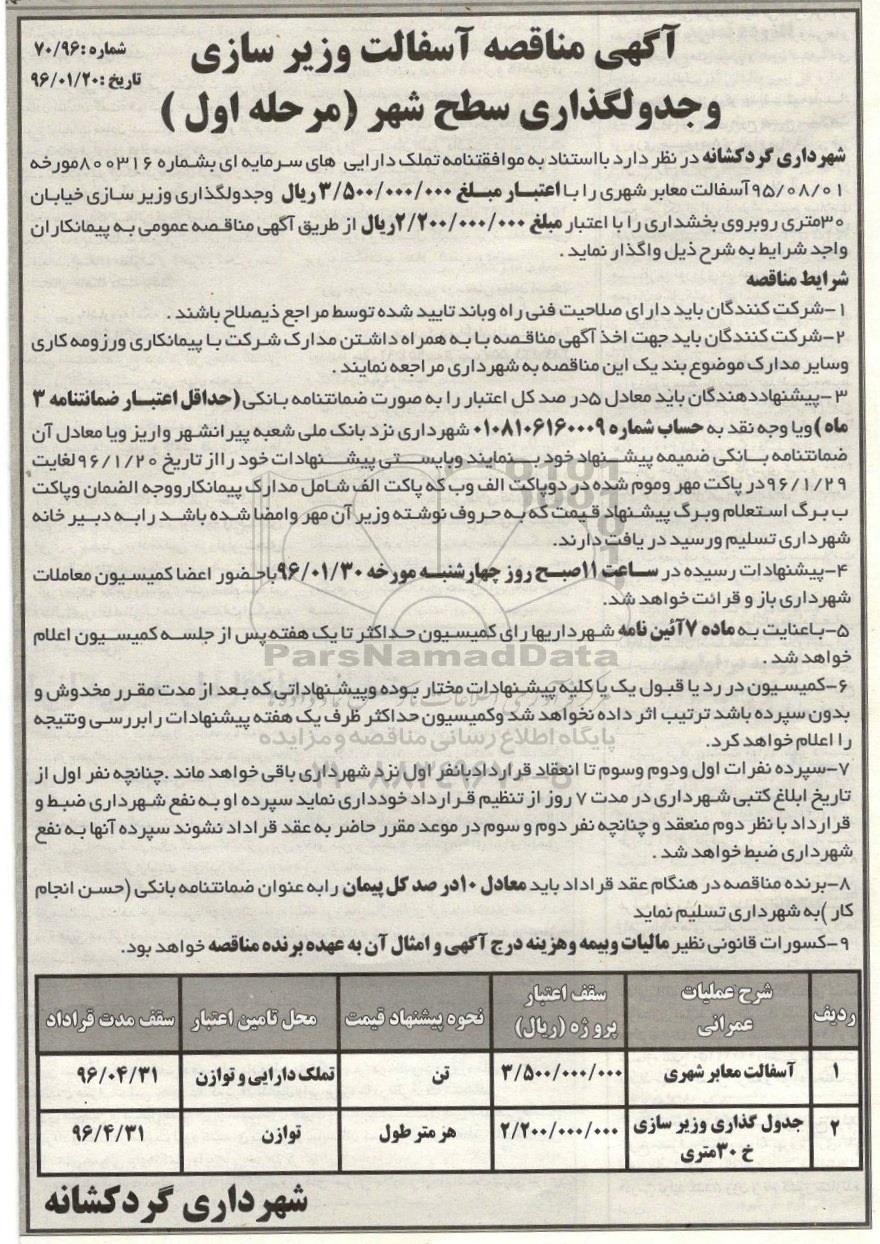 آگهی مناقصه آسفالت وزیر سازی
شماره :۷۰/۹۶
تاریخ :۹۶/۰۱/۲۰
وجدولگذاری سطح شهر (مرحله اول )
شهرداری گردکشانه در نظر دارد با استناد به موافقتنامه تملک دارایی های سرمایه ای بشماره ۸۰۰۳۱۶مورخه
۹۵/۰۸/۰۱آسفالت معابر شهری را با اعتبار مبلغ ۳/۵۰۰/۰۰۰/۰۰۰ ریال وجدولگذاری وزیر سازی خیابان
۳۰متری روبروی بخشداری را با اعتبار مبلغ ۲/۲۰۰/۰۰۰/۰۰۰ریال از طریق آگهی مناقصه عمومی به پیمانکاران
واجد شرایط به شرح ذیل واگذار نماید .
شرایط مناقصه
۱-شرکت کنندگان باید دارای صلاحیت فنی راه وباند تایید شده توسط مراجع ذیصلاح باشند .
۲-شرکت کنندگان باید جهت اخذ آگهی مناقصه با به همراه داشتن مدارک شرکت با پیمانکاری ورزومه کاری
وسایر مدارک موضوع بند یک این مناقصه به شهرداری مراجعه نمایند .
۳-پیشنهاددهندگان باید معادل ۵در صد کل اعتبار را به صورت ضمانتنامه بانکی (حداقل اعتبار ضمانتنامه ۳
ماه )ویا وجه نقد به حساب شماره ۰۱۰۸۱۰۶۱۶۰۰۰۹ شهرداری نزد بانک ملی شعبه پیرانشهر واریز ویا معادل آن
ضمانتنامه بانکی ضمیمه پیشنهاد خود بنمایند وبایستی پیشنهادات خود را از تاریخ ۹۶/۱/۲۰لغایت
۹۶/۱/۲۹در پاکت مهر وموم شده در دوپاکت الف وب که پاکت الف شامل مدارک پیمانکارووجه الضمان وپاکت
ب برگ استعلام وبرگ پیشنهاد قیمت که به حروف نوشته وزیر آن مهر وامضا شده باشد رابه دبیر خانه
شهرداری تسلیم ورسید دریافت دارند.
۴-پیشنهادات رسیده در ساعت ۱۱صبح روز چهارشنبه مورخه ۹۶/۰۱/۳۰باحضور اعضا کمیسیون معاملات
شهرداری باز و قرائت خواهد شد.
۵-باعنایت به ماده ۷آئین نامه شهرداریها رای کمیسیون حداکثر تا یک هفته پس از جلسه کمیسیون اعلام
خواهد شد .
ParsNamadData
۶-کمیسیون در رد یا قبول یک یا کلیه پیشنهادات مختار بوده وپیشنهاداتی که بعد از مدت مقرر مخدوش و
بدون سپرده باشد ترتیب اثر داده نخواهد شد وکمیسیون حداکثر ظرف یک هفته پیشنهادات رابررسی ونتیجه
را اعلام خواهد کرد.
پایگاه اطلاع رسانی مناقصه و مزایده
۷-سپرده نفرات اول ودوم وسوم تا انعقاد قراردادبانفر اول نزد شهرداری باقی خواهد ماند .چنانچه نفر اول از
تاریخ ابلاغ کتبی شهرداری در مدت ۷ روز از تنظیم قرارداد خودداری نماید سپرده او به نفع شهرداری ضبط و
قرارداد با نظر دوم منعقد و چنانچه نفر دوم و سوم در موعد مقرر حاضر به عقد قراداد نشوند سپرده آنها به نفع
شهرداری ضبط خواهد شد .
۸-برنده مناقصه در هنگام عقد قراداد باید معادل ۱۰در صد کل پیمان رابه عنوان ضمانتنامه بانکی (حسن انجام
کار )به شهرداری تسلیم نماید
۹-کسورات قانونی نظیر مالیات وبیمه وهزینه درج آگهی و امثال آن به عهده برنده مناقصه خواهد بود.
ردیف شرح عملیات عمرانی سقف اعتبار پروژه (ریال) نحوه پیشنهاد قیمت محل تامین اعتبار سقف مدت قراداد
۱ آسفالت معابر شهری ۳/۵۰۰/۰۰۰/۰۰۰ تن تملک دارایی و توازن ۹۶/۰۴/۳۱
۲ جدول گذاری وزیر سازی خ ۳۰متری ۲/۲۰۰/۰۰۰/۰۰۰ هر متر طول توازن ۹۶/۴/۳۱
شهرداری گردکشانه